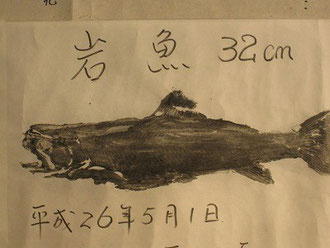 岩魚 32cm
平成26年5月1日